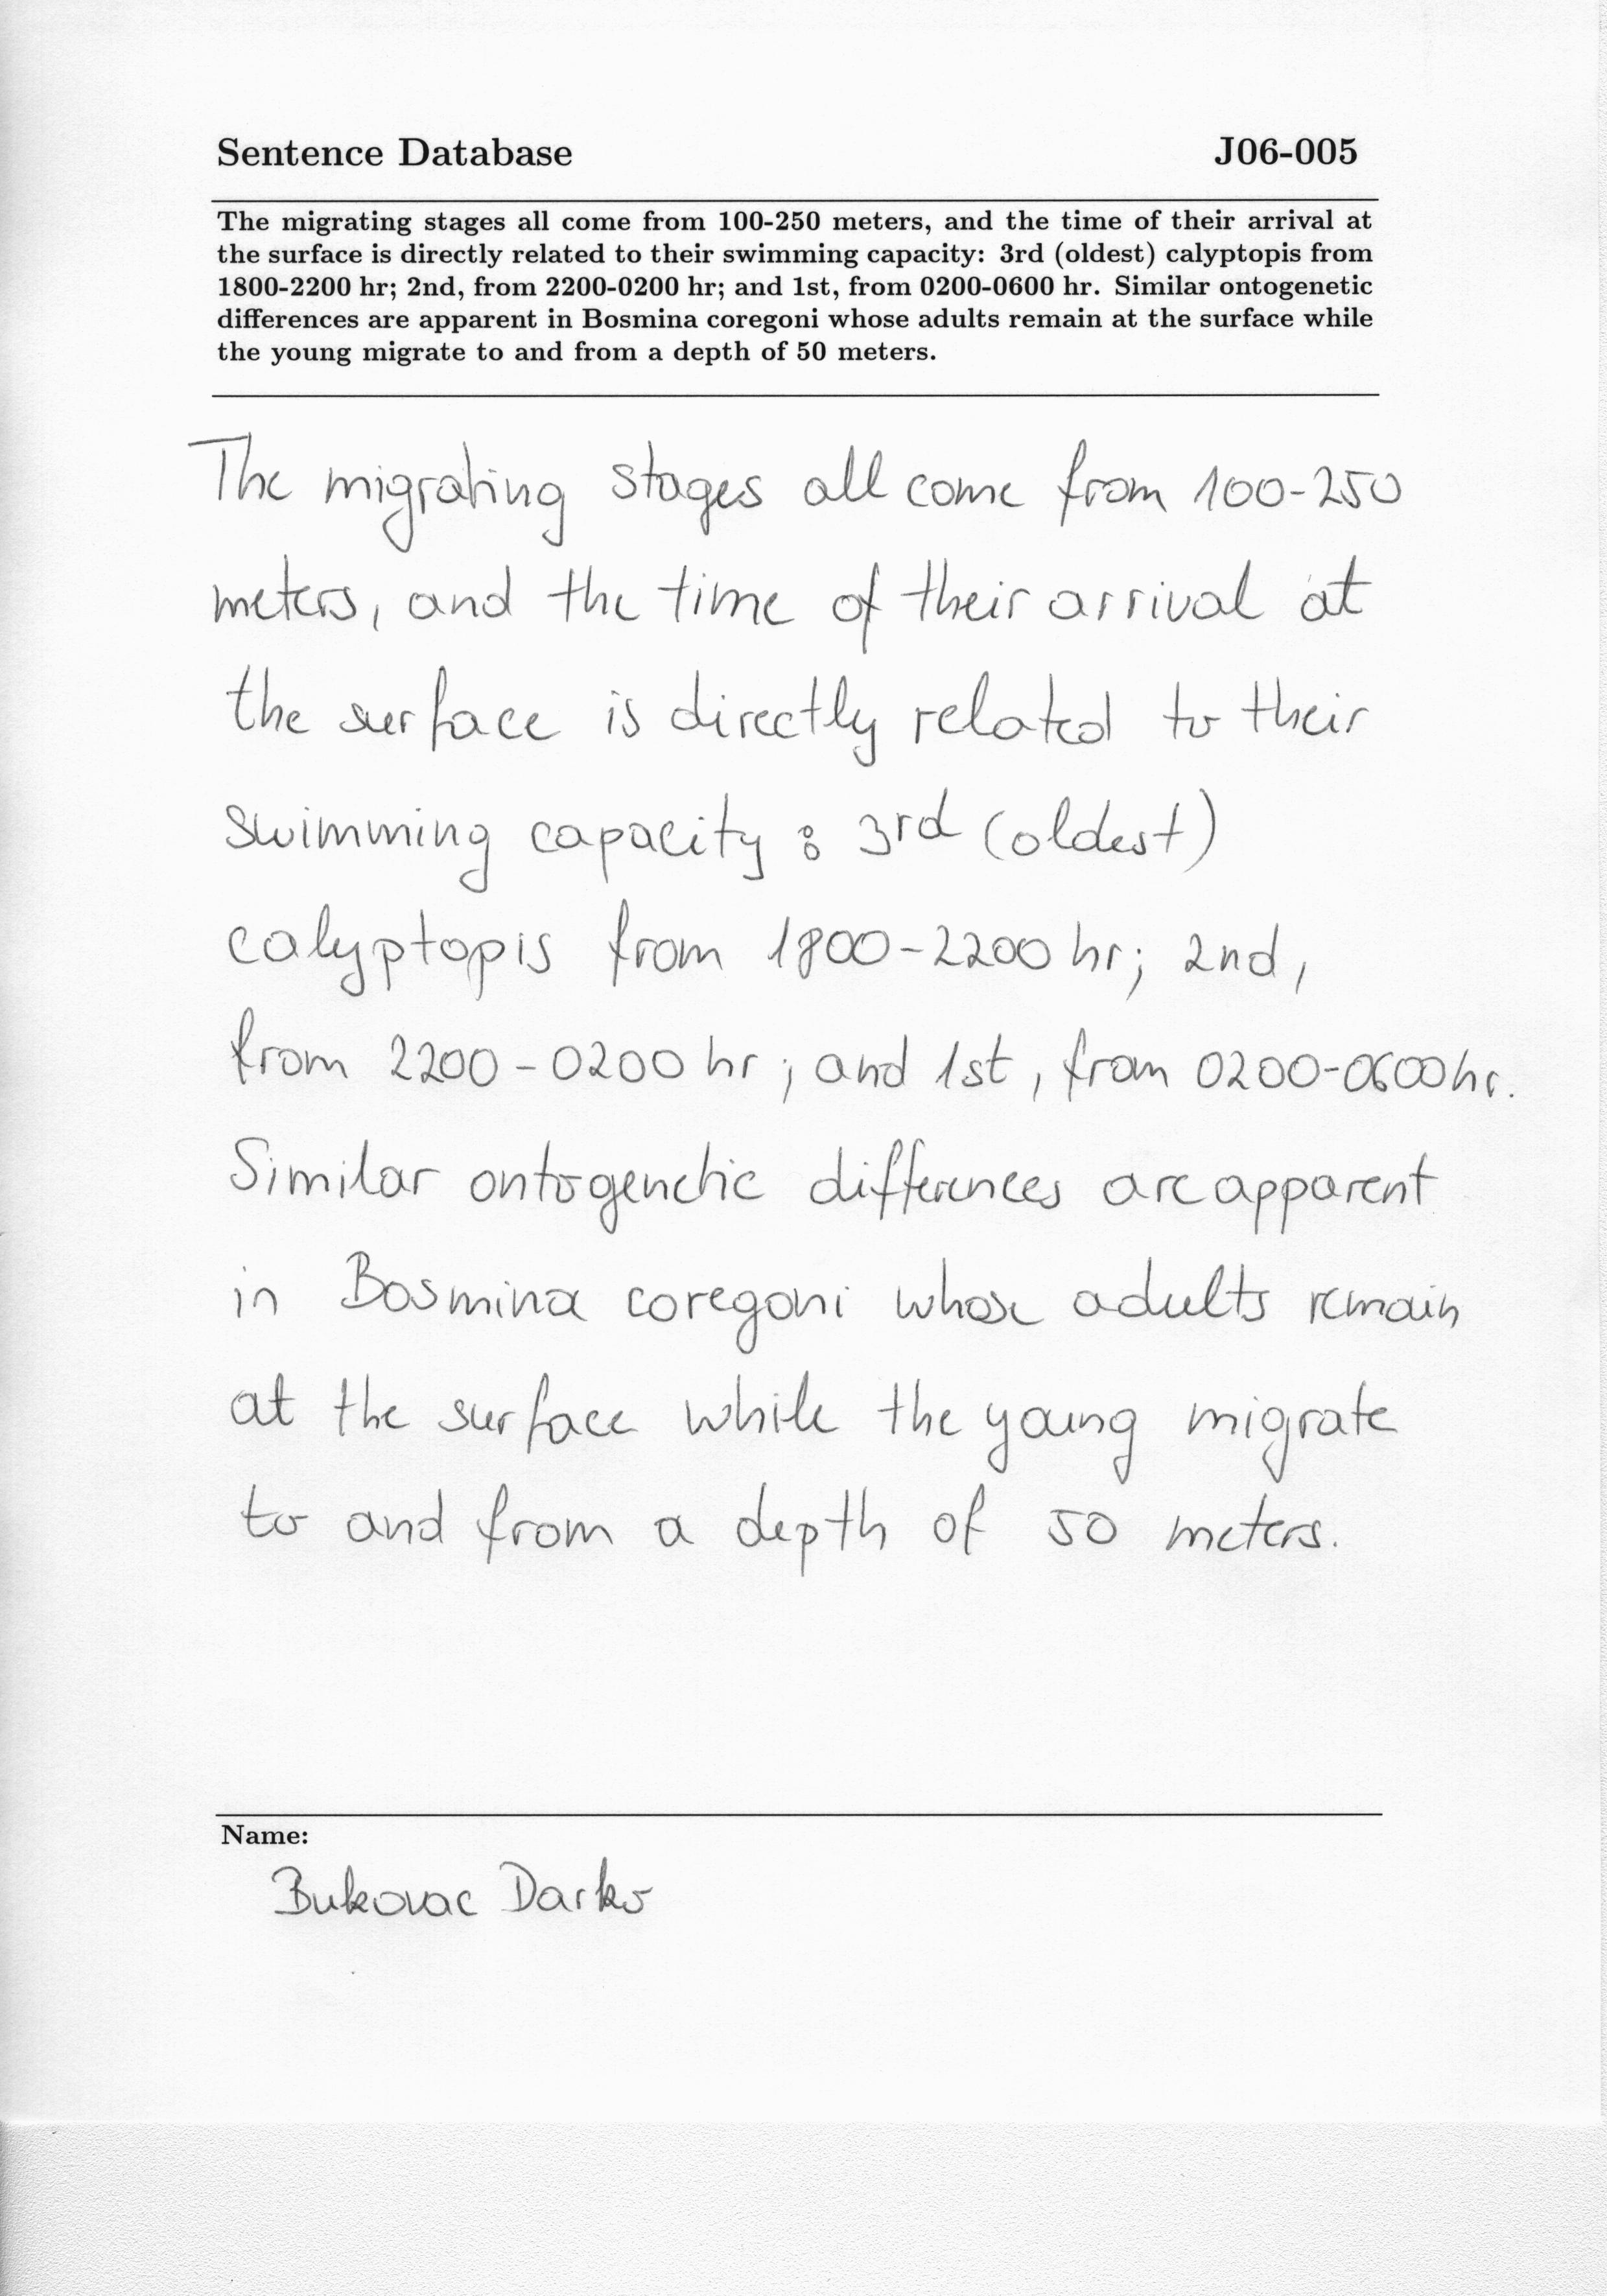 Sentence Database J06-005
The migrating stages all come from 100-250 meters, and the time of their arrival at
the surface is directly related to their swimming capacity: 3rd (oldest) calyptopis from
1800-2200 hr; 2nd, from 2200-0200 hr; and 1st, from 0200-0600 hr. Similar ontogenetic
differences are apparent in Bosmina coregoni whose adults remain at the surface while
the young migrate to and from a depth of 50 meters.
The migrating stages all come from 100-250
meters, and the time of their arrival at
the surface is directly related to their
swimming capacity : 3rd (oldest)
calyptopis from 1800-2200 hr; 2nd,
from 2200-0200 hr ; and 1st, from 0200-0600 hr.
Similar ontogenetic differences are apparent
in Bosmina coregoni whose adults remain
at the surface while the young migrate
to and from a depth of 50 meters.
Name:
Bukovac Darko